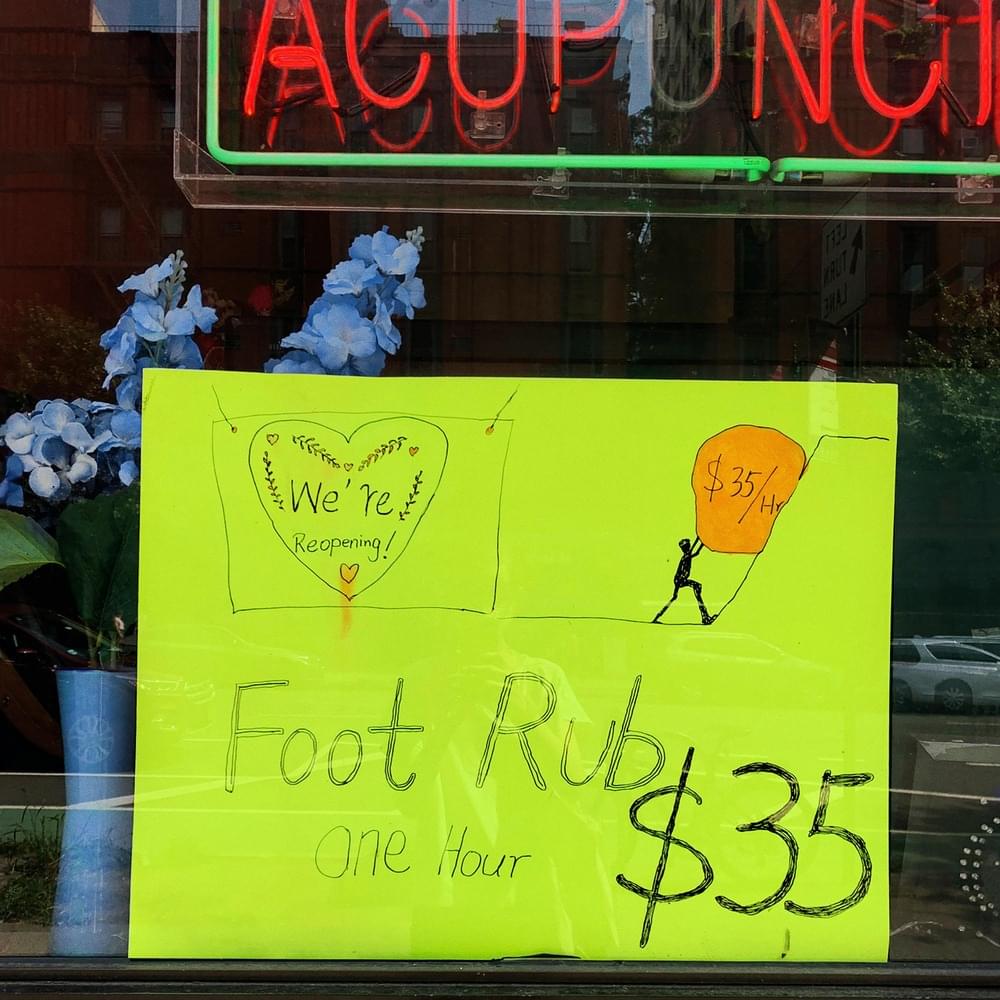 ACUPUNCT
We're
Reopening!
$35/Hr
Foot Rub
one Hour
$35